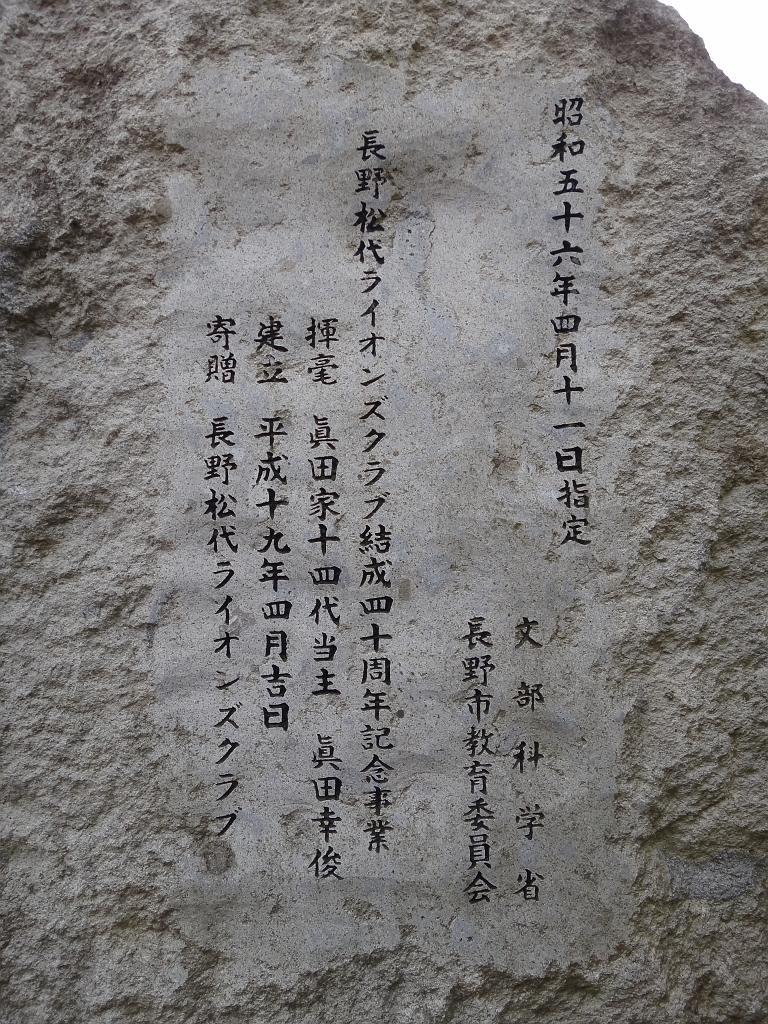 昭和五十六年四月十一日指定
文部科学省
長野市教育委員会
長野松代ライオンズクラブ結成四十周年記念事業
揮毫 眞田家十四代当主 眞田幸俊
建立 平成十九年四月吉日
寄贈 長野松代ライオンズクラブ